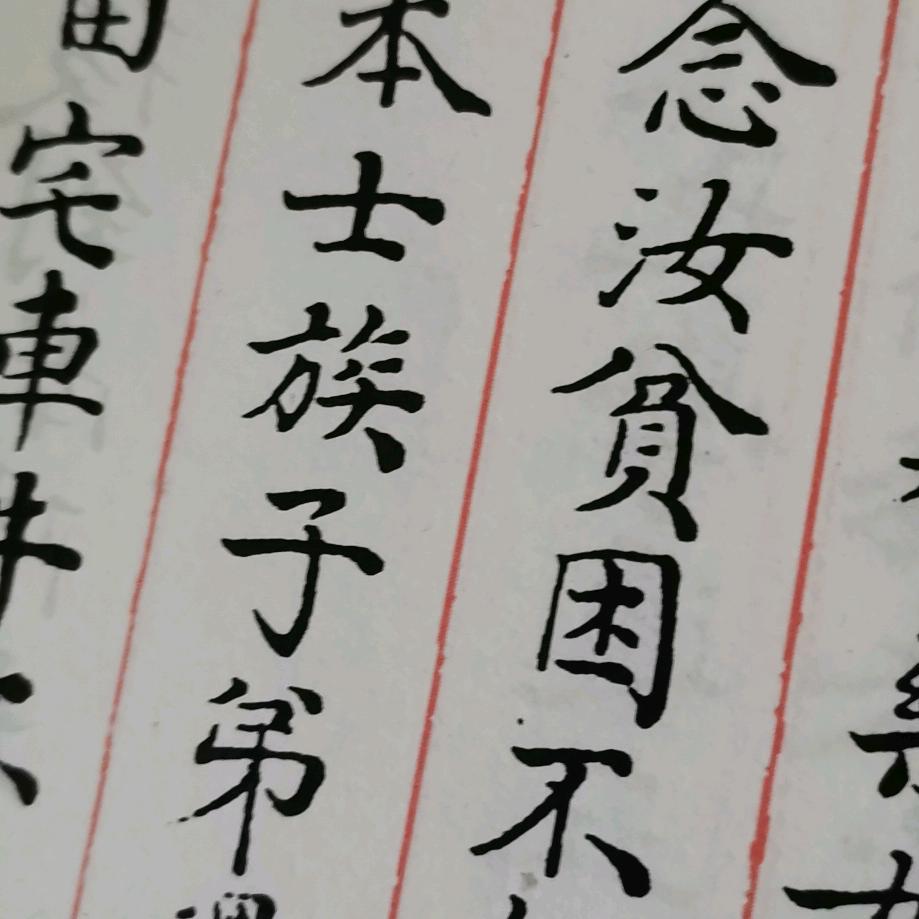 念汝貧困不
本士族子弟
田宅車牛